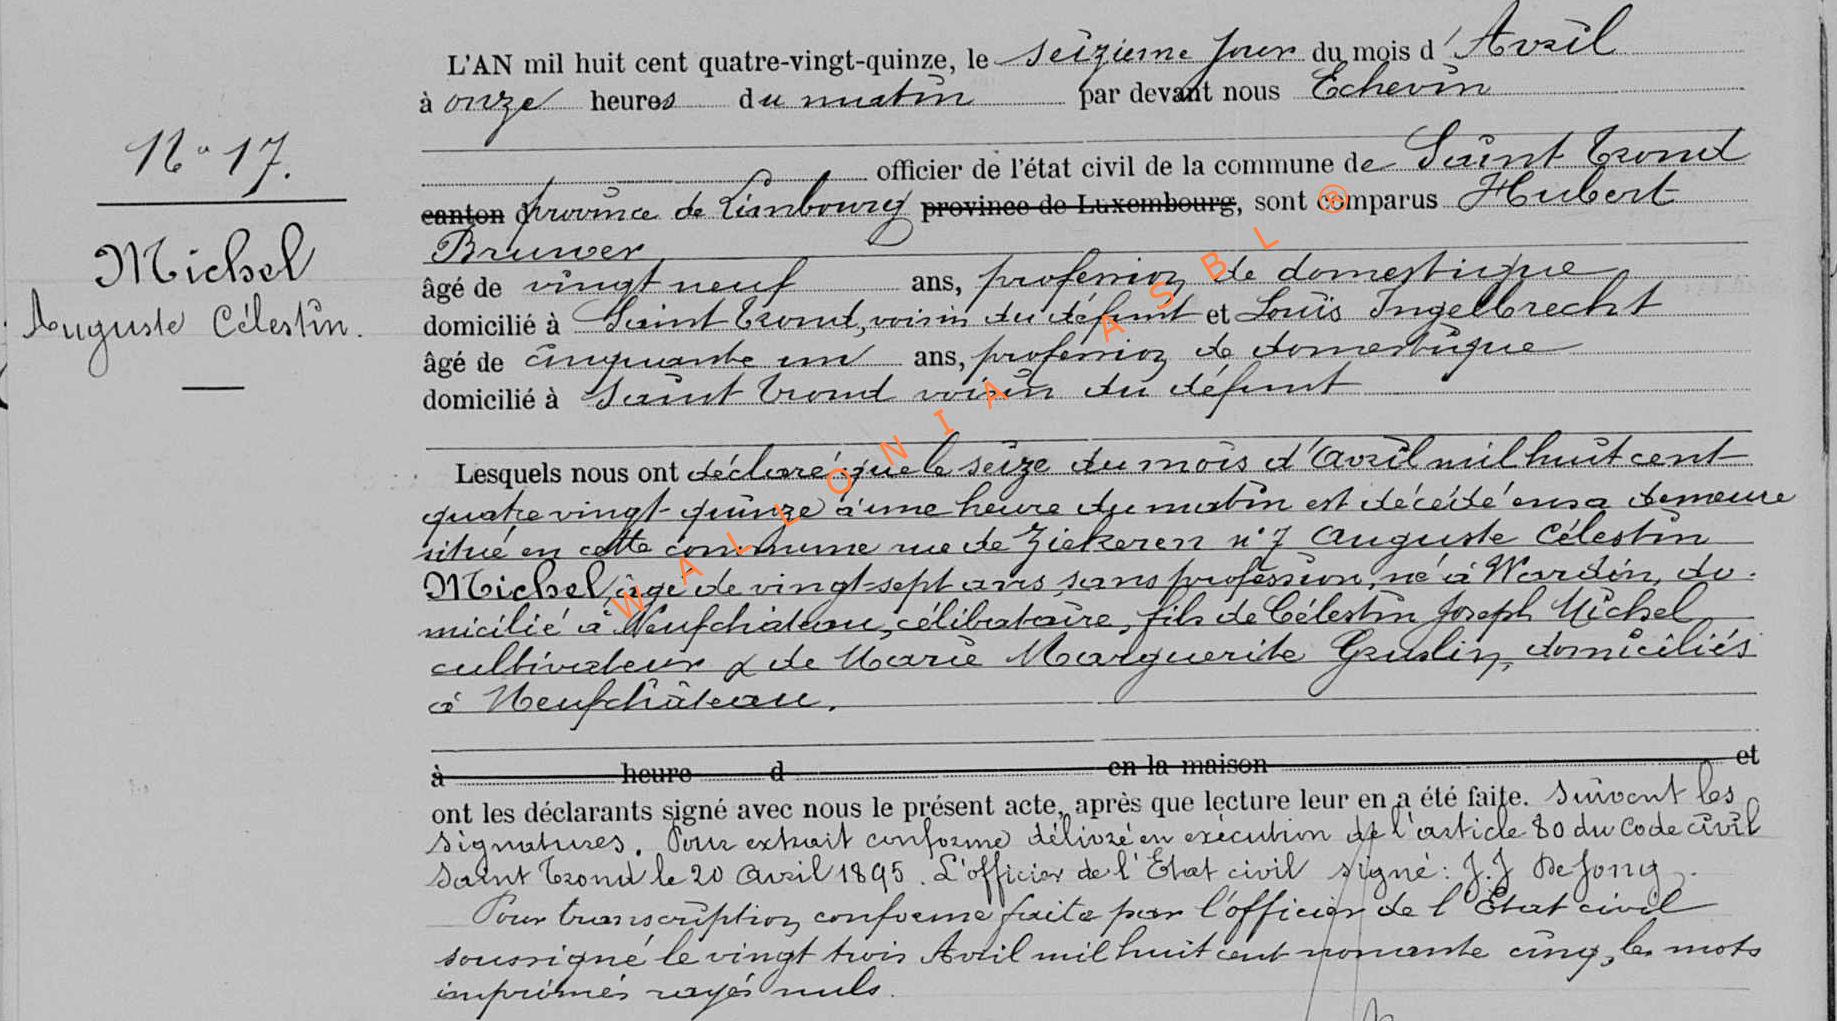 L'AN mil huit cent quatre-vingt-quinze, le seizième jour du mois d'Avril
à onze heures du matin par devant nous Echevin
officier de l'état civil de la commune de Saint Trond
canton d province de Limbourg province de Luxembourg, sont comparus Hubert
Bruwer
âgé de vingt neuf ans, profession de domestique
domicilié à Saint Trond, voisin du défunt et Louis Ingelbrecht
âgé de cinquante un ans, profession de domestique
domicilié à Saint Trond voisin du défunt
N° 17.
Michel
Auguste Célestin.
Lesquels nous ont déclaré que le seize du mois d'Avril mil huit cent
quatre vingt-quinze à une heure du matin est décédé en sa demeure
situé en cette commune rue de Ziekeren n° 7 Auguste Célestin
Michel, âgé de vingt-sept ans, sans profession, né à Wardin, do-
micilié à Neufchâteau, célibataire, fils de Célestin Joseph Michel
cultivateur & de Marie Marguerite Guslin, domiciliés
à Neufchâteau.
à heure d en la maison et
ont les déclarants signé avec nous le présent acte, après que lecture leur en a été faite. Suivent les
signatures. Pour extrait conforme délivré en exécution de l'article 80 du Code civil
Saint Trond le 20 Avril 1895. L'officier de l'Etat civil signé: J.J DeJong.
Pour transcription conforme faite par l'officier de l'Etat civil
soussigné le vingt trois Avril mil huit cent nonante cinq, les mots
imprimés rayés nuls.
WALLONIA ASBL ®